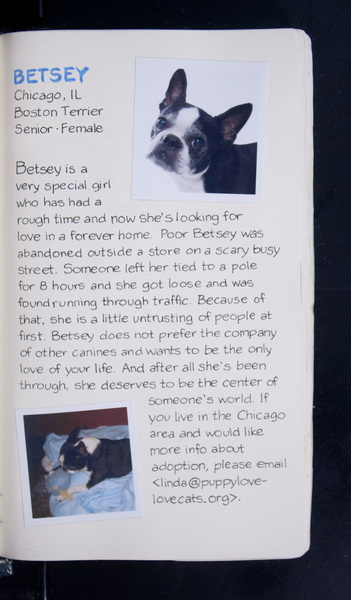 BETSEY
Chicago, IL
Boston Terrier
Senior · Female
Betsey is a
very special girl
who has had a
rough time and now she's looking for
love in a forever home. Poor Betsey was
abandoned outside a store on a scary busy
street. Someone left her tied to a pole
for 8 hours and she got loose and was
found running through traffic. Because of
that, she is a little untrusting of people at
first. Betsey does not prefer the company
of other canines and wants to be the only
love of your life. And after all she's been
through, she deserves to be the center of
someone's world. If
you live in the Chicago
area and would like
more info about
adoption, please email
<linda@puppylove-
lovecats.org>.